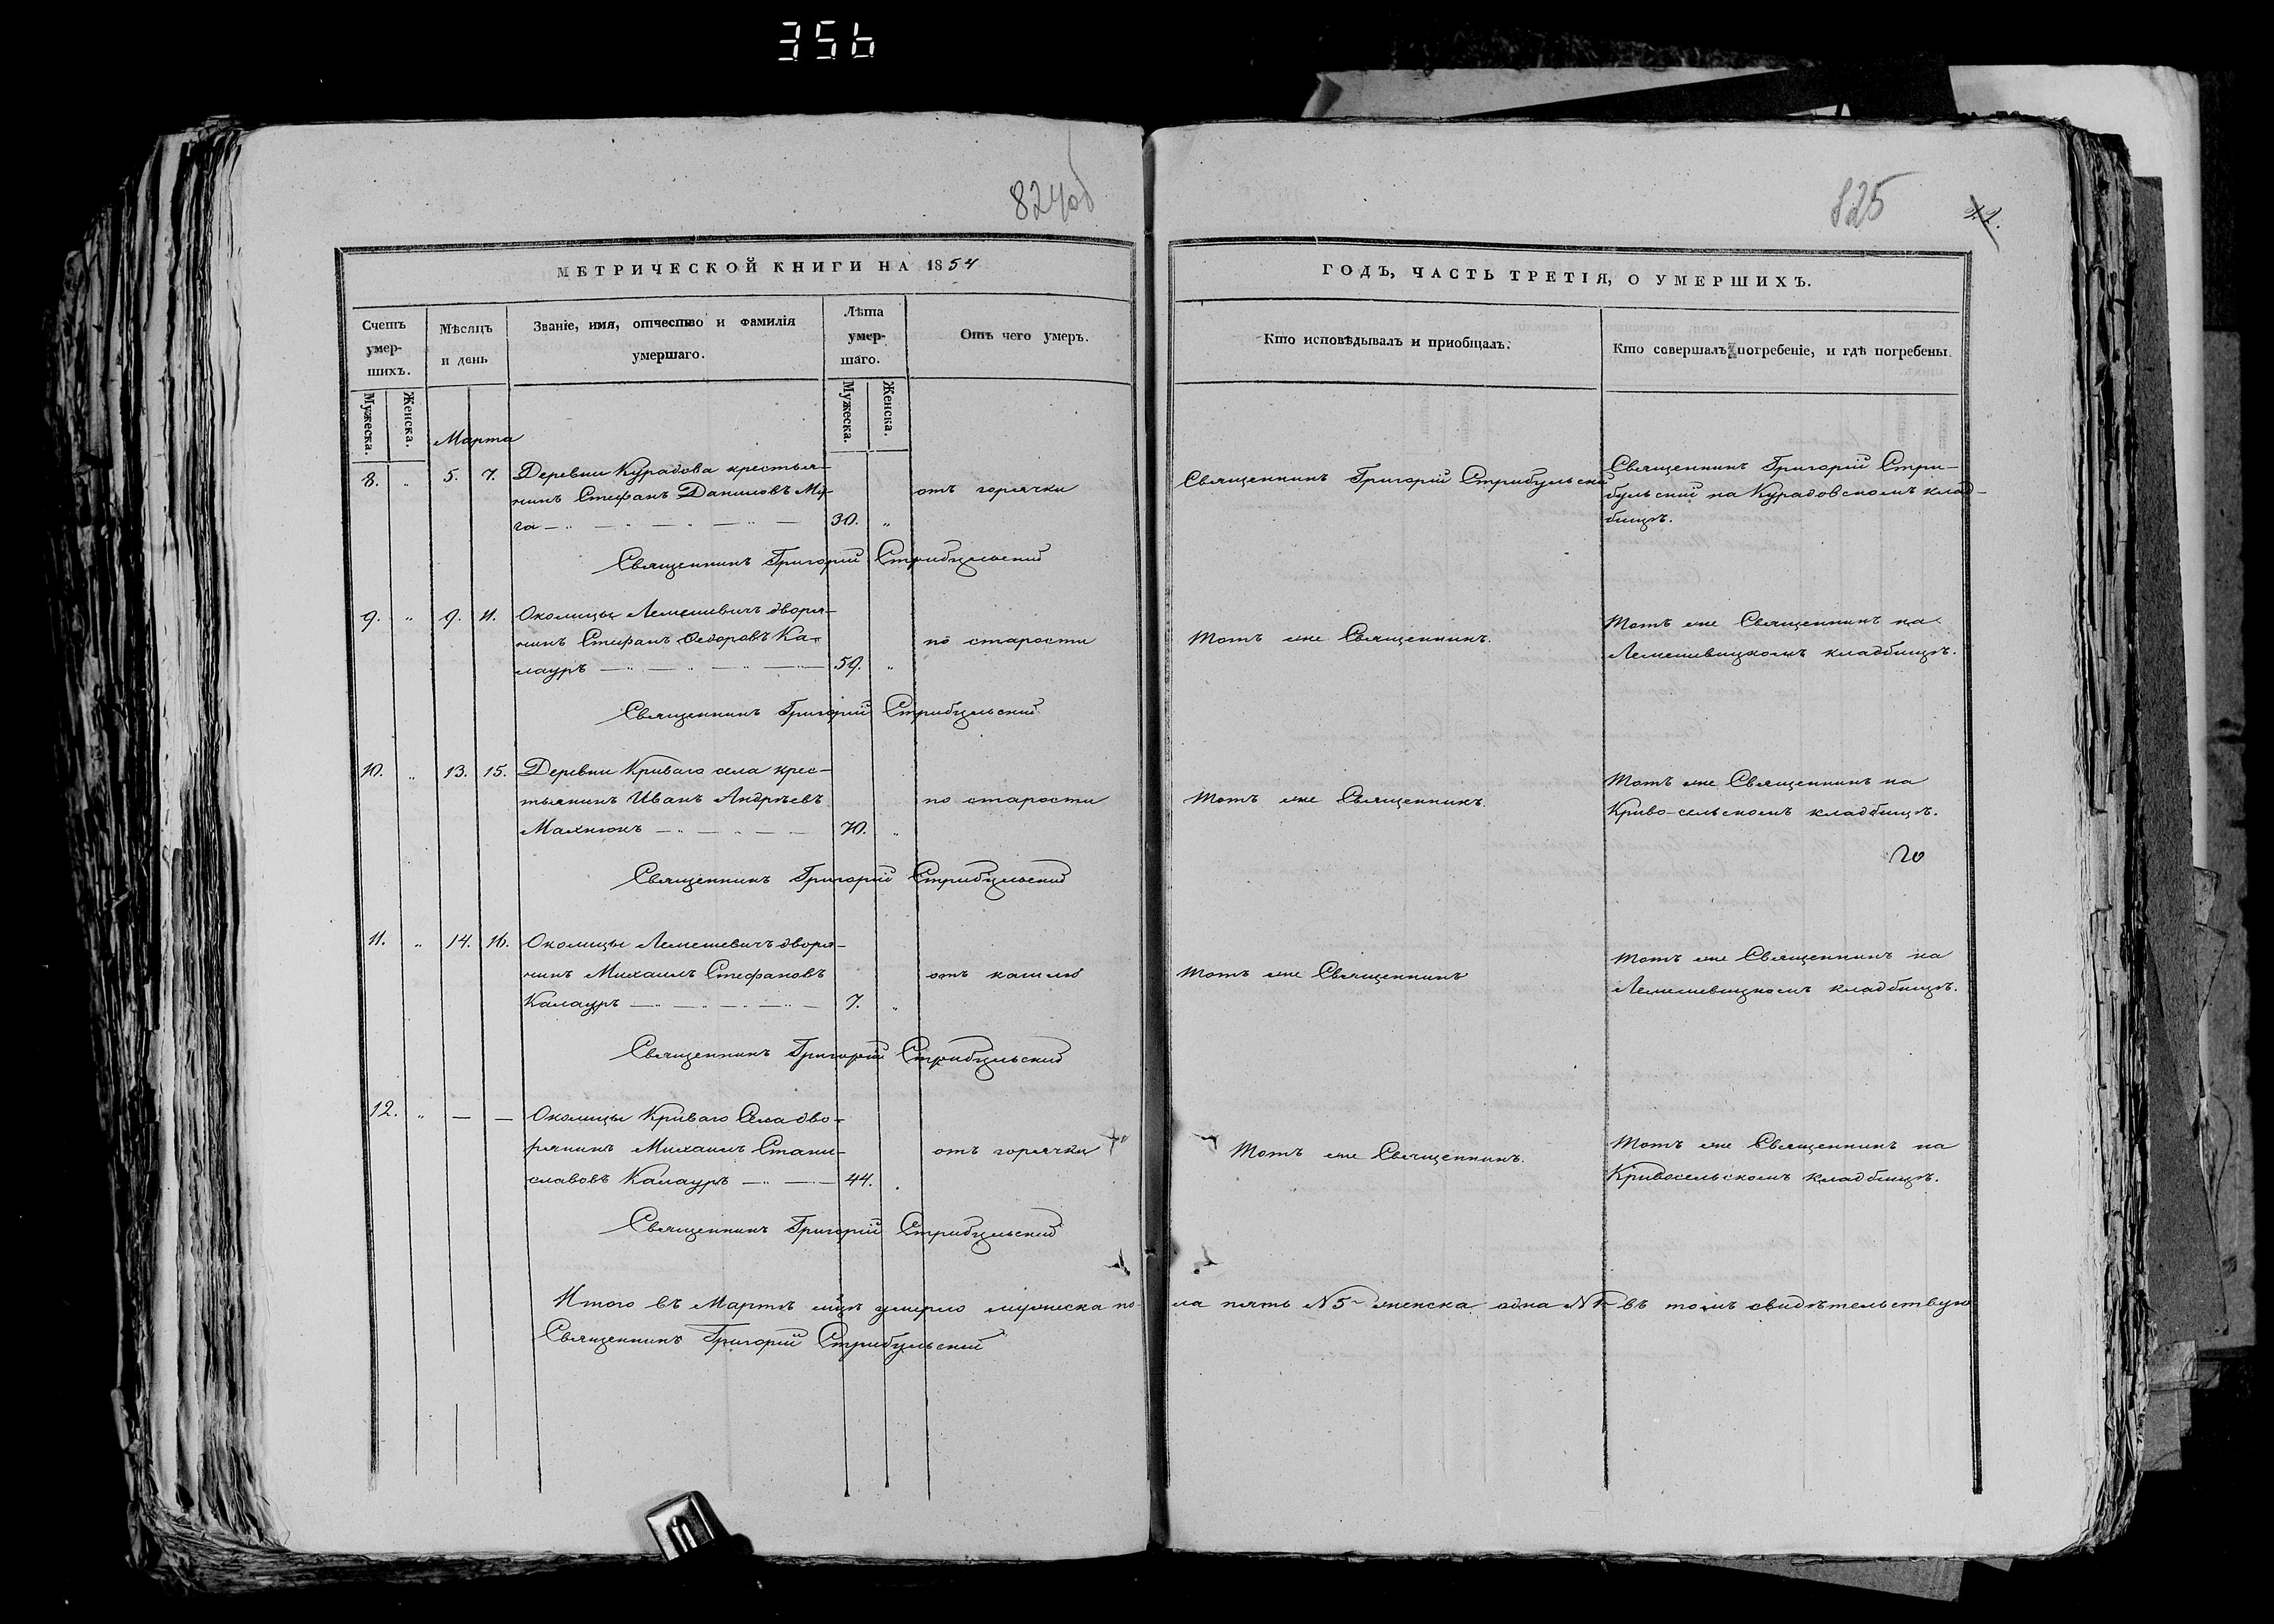 356
824об
825
22.
МЕТРИЧЕСКОЙ КНИГИ НА 1854
ГОДЪ, ЧАСТЬ ТРЕТІЯ, О УМЕРШИХЪ.
Счетъ умер-шихъ.
Мѣсяцъ и день
Званіе, имя, отчество и фамилія умершаго.
Лѣта умер-шаго.
Отъ чего умеръ.
Кто исповѣдывалъ и пріобщалъ.
Кто совершалъ погребеніе, и гдѣ погребены.
Мужеска.
Женска.
Мужеска.
Женска.
Марта
8. „ 5. 7. Деревни Курадова крестья-
нинъ Стефанъ Даниловъ Му-
га 30. „
отъ горячки
Священникъ Григорій Стрибульскій
Священникъ Григорій Стри-
бульскій на Курадовскомъ клад-
бищѣ.
Священникъ Григорій Стрибульскій
9. „ 9. 11. Околицы Лемешевичъ дворя-
нинъ Стефанъ Ѳедоровъ Ка-
лауръ 59. „
по старости
Тотъ же Священникъ.
Тотъ же Священникъ на
Лемешевицкомъ кладбищѣ.
Священникъ Григорій Стрибульскій
10. „ 13. 15. Деревни Криваго села крес-
тьянинъ Иванъ Андрѣевъ
Махнюкъ 70. „
по старости
Тотъ же Священникъ.
Тотъ же Священникъ на
Криво-сельскомъ кладбищѣ.
Священникъ Григорій Стрибульскій
11. „ 14. 16. Околицы Лемешевичъ дворя-
нинъ Михаилъ Стефановъ
Калауръ 7. „
отъ кашлю
Тотъ же Священникъ
Тотъ же Священникъ на
Лемешевицкомъ кладбищѣ.
Священникъ Григорій Стрибульскій
12. „ — — Околицы Криваго Села дво-
рянинъ Михаилъ Стани-
славовъ Калауръ 44.
отъ горячки
Тотъ же Священникъ.
Тотъ же Священникъ на
Кривосельскомъ кладбищѣ.
Священникъ Григорій Стрибульскій
Итого въ Мартѣ мцѣ умерло мужеска по-ла пять N 5 женска одна N 1 въ томъ свидѣтельствую
Священникъ Григорій Стрибульскій